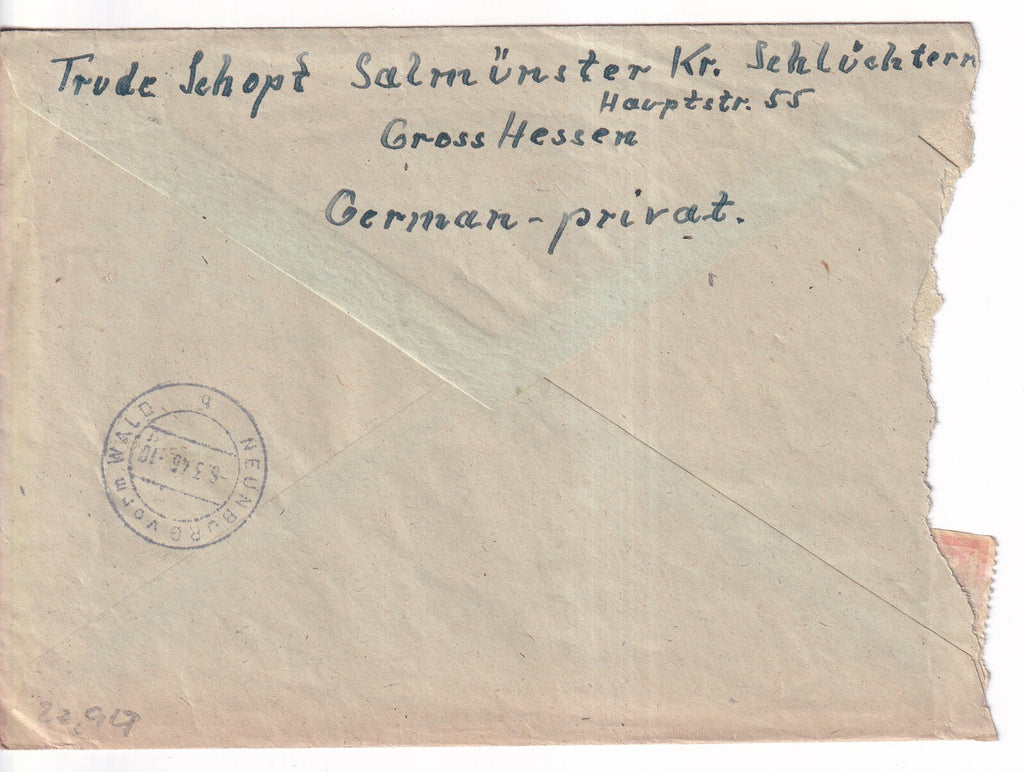 Trude Schopf Salmünster Kr. Schlüchtern
Hauptstr. 55
Gross Hessen
German - privat.
NEUNBURG vorm WALD